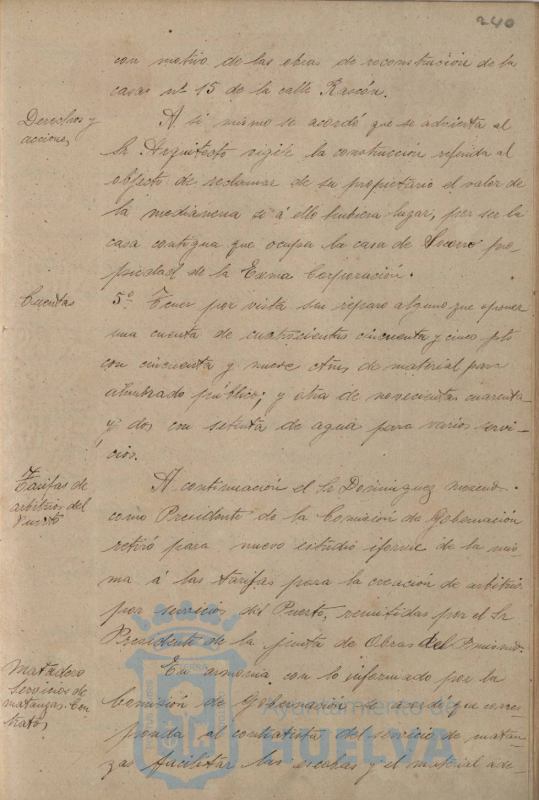 240
con motivo de las obras de reconstrucción de la
casas nº 15 de la calle Rascón.
Derechos y
acciones
A si mismo se acordó que se advierta al
Sr Arquitecto vigile la construccion referida al
objeto de reclamar de su propietario el valor de
la medianeria si á ello hubiera lugar, por ser la
casa contigua que ocupa la casa de Socorro pro-
piedad de la Exma Corporación.
Cuentas
5º Tener por vista sin reparo alguno que oponer
una cuenta de cuatrocientas cincuenta y cinco pts
con cincuenta y nueve ctms de material para
alumbrado público; y otra de novecientas cuarenta
y dos con setenta de agua para varios servi-
cios.
Tarifas de
arbitrios del
Puerto
A continuación el Sr Dominguez
como Presidente de la Comisión de Gobernación
retiró para nuevo estudio iforme de la mis-
ma á las tarifas para la creacion de arbitrios
por servicios del Puerto, remitidas por el Sr
Presidente de la junta de Obras del mismo.
Matadero
Servicios de
matanzas. Con
tratos
En armonia con lo informado por la
Comisión de Gobernación se acordó que corres-
ponda al contratista del servicio de matan-
zas facilitar las escobas y el material ade-
Ayuntamiento de
HUELVA